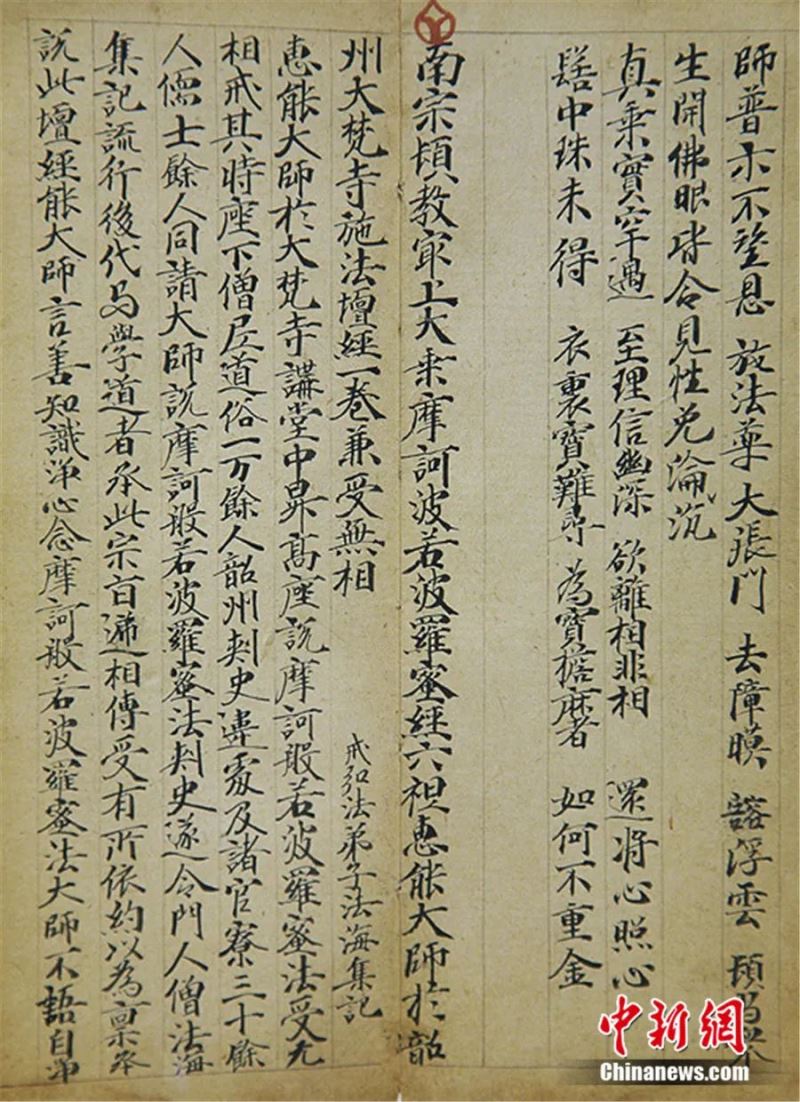 師普示不望息 放法藥 大張門 去障膜 豁浮雲 頓
生開佛眼 皆合見性免淪沉
真乘實罕遇 至理信幽深 欲離相非相 還將心照心
髻中珠未得 衣裏寶難尋 為寶擔麻者 如何不重金
南宗頓教㝡上大乘摩訶波若波羅蜜經六祖惠能大師於韶
州大梵寺施法壇經一卷兼受無相
戒弘法弟子法海集記
惠能大師於大梵寺講堂中昇高座說摩訶般若波羅蜜法受无
相戒其時座下僧尼道俗一万餘人韶州刾史違處及諸官寮三十餘
人儒士餘人同請大師說摩訶般若波羅蜜法刾史遂令門人僧法海
集記流行後代与學道者承此宗旨遞相傳受有所依約以為稟承
說此壇經能大師言善知識淨心念摩訶般若波羅蜜法大師不語自淨
中新網
Chinanews.com